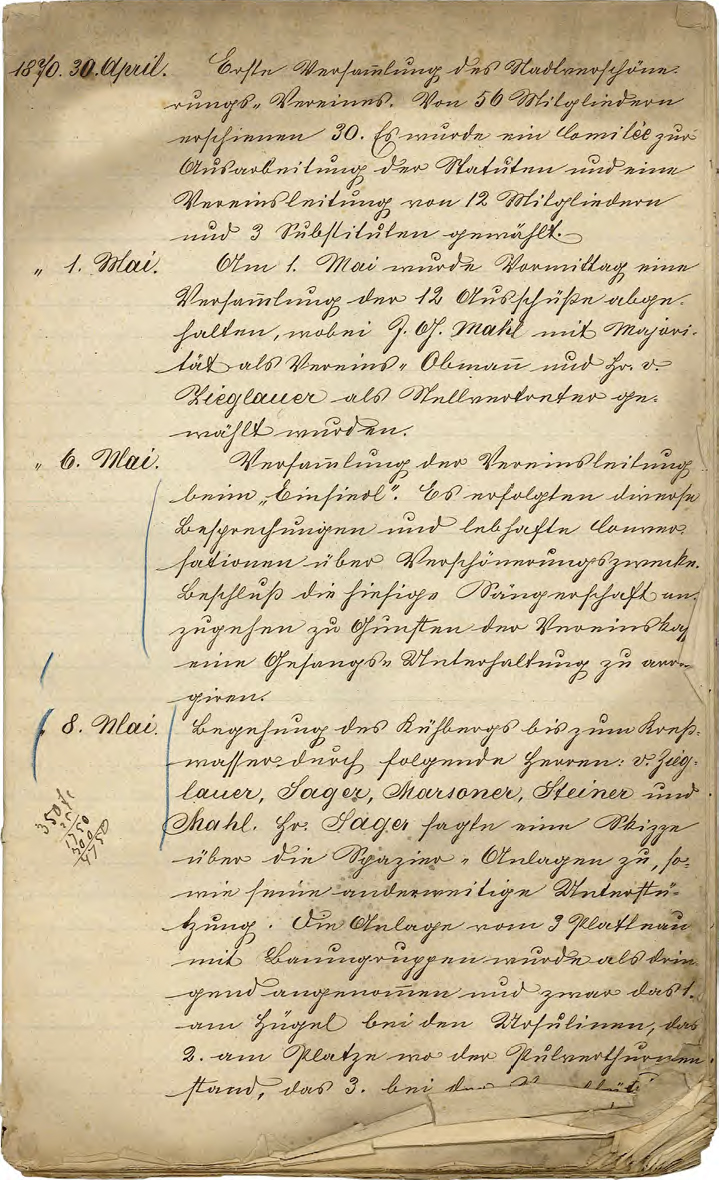 1870. 30. April. Erste Versam̄lung des Stadtverschöne-
rungs-Vereines. Von 56 Mitgliedern
erschienen 30. Es wurde ein Comitée zur
Ausarbeitung der Statuten und eine
Vereinsleitung von 12 Mitgliedern
und 3 Substituten gewählt.
" 1. Mai. Am 1. Mai wurde Vormittag eine
Versam̄lung der 12 Ausschüße abge-
halten, wobei J. G. Mahl mit Majori-
tät als Vereins-Obman̄ und Hr. v.
Zieglauer als Stellvertreter ge-
wählt wurden.
" 6. Mai. Versam̄lung der Vereinsleitung
beim „Einsiedl". Es erfolgten diverse
Besprechungen und lebhafte Conver-
sationen über Verschönerungszwecke.
Beschluß die hiesige Sängerschaft an-
zugehen zu Gunsten der Vereinskas
eine Gesangs-Unterhaltung zu arra-
giren.
" 8. Mai. Begehung des Kühbergs bis zum Kreß-
wasser durch folgende Herren: v. Zieg-
lauer, Sager, Marsoner, Steiner und
Mahl. Hr. Sager sagte eine Skizze
über die Spazier-Anlagen zu, so-
wie seine anderweitige Unterstü-
tzung. Die Anlage vom 3 Platteau
mit Baumgruppen wurde als drin-
gend angenom̄en und zwar das 1.
am Hügel bei den Ursulinen, das
2. am Platze wo der Pulverthurm
stand, das 3. bei der
350 fl
1750
300
4750